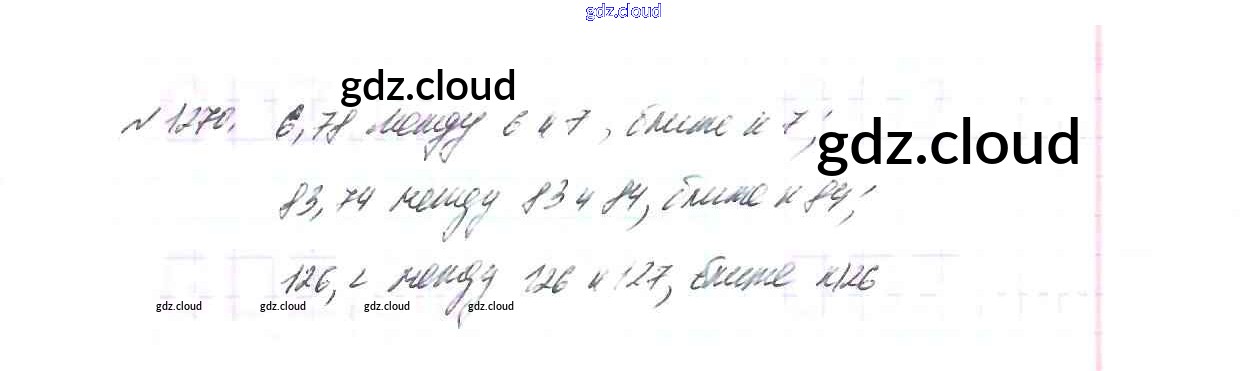 gdz.cloud
gdz.cloud
№1270. 6,78 между 6 и 7, ближе к 7;
gdz.cloud
83,74 между 83 и 84, ближе к 84;
126,2 между 126 и 127, ближе к 126
gdz.cloud gdz.cloud gdz.cloud gdz.cloud